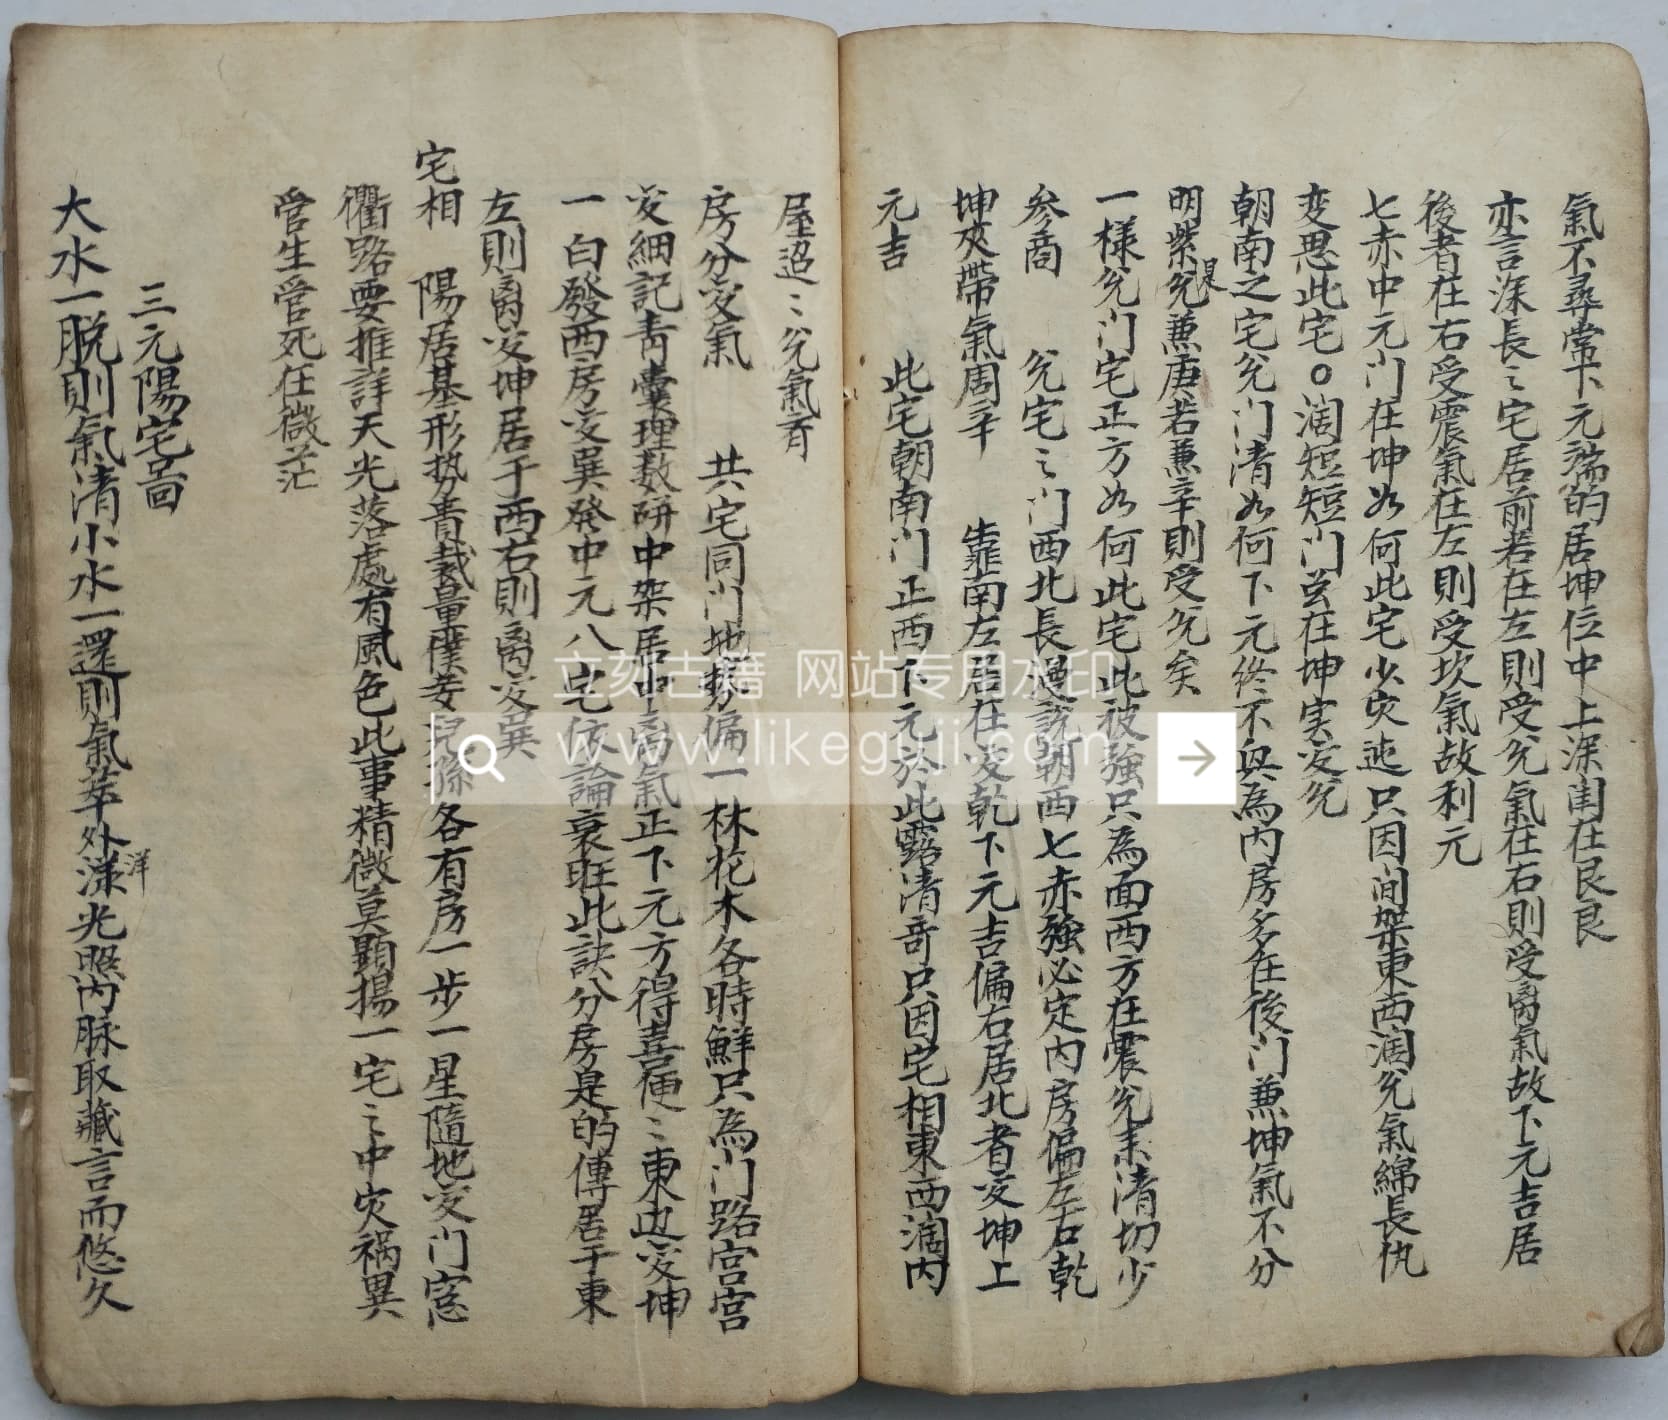 氣不尋常下元端的居坤位中上深閨在艮艮
亦言深長〻宅居前若在左則受兊氣在右則受离氣故下元吉居
後者在右受震氣在左則受坎氣故利元
七赤中元门在坤如何此宅少灾迍只因间架東西濶兊氣綿長仇
变恩此宅○濶短短门在坤実受兊
朝南之宅兊门清如何下元终不興為内房多在後门兼坤氣不分
明紫兊兼庚若兼辛則受兊矣
一樣兊门宅正方如何此宅此被強只為面西方在震兊未清切少
参商 兊宅〻门西北長漫説朝西七赤強必定内房偏左右乾
坤夾帶氣周辛 靠南左居在受乾下元吉偏右居北者受坤上
元吉 此宅朝南门正西下元於此露清奇只因宅相東西濶内
屋迢〻兊氣斉
房分受氣 共宅同门地勢偏一林花木各時鮮只為门路宫宫
受細記青囊理数研中架居中离氣正下元方得喜便〻東边受坤
一白發西房受巽発中元八宅依論衰旺此訣分房是的傳居于東
左則离受坤居于西右則离受巽
宅相 陽居基形势貴裁量僕妾兒孫各有房一步一星隨地受门窓
衢路要推詳天光落處有風色此事精微莫顯揚一宅〻中灾禍異
管生管死任微茫
三元陽宅啚
大水一脱則氣清小水一還則氣萃外漾光照内脉取藏言而悠久
洋
立刻古籍 网站专用水印
www.likeguji.com